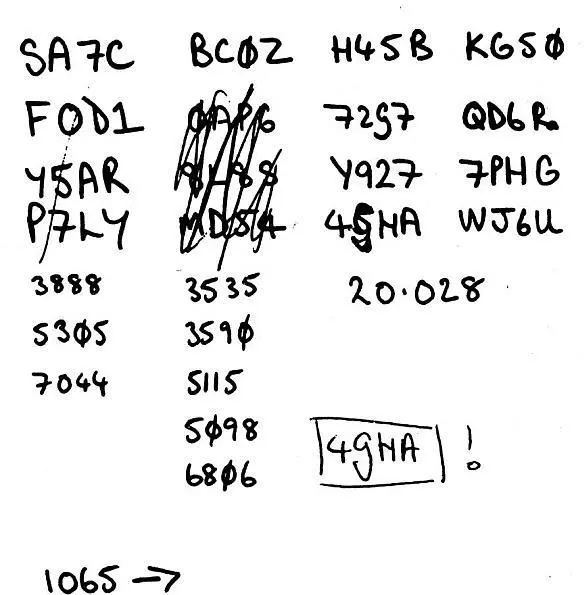 SA7C BCØZ H45B KG5Ø
FOD1 ØAP6 7297 QD6R
Y5AR 8H88 Y927 7PHG
P7LY MD54 49HA WJ6U
3888 3535 20.028
53Ø5 359Ø
7044 5115
5Ø98
68Ø6
49HA !
1065 →